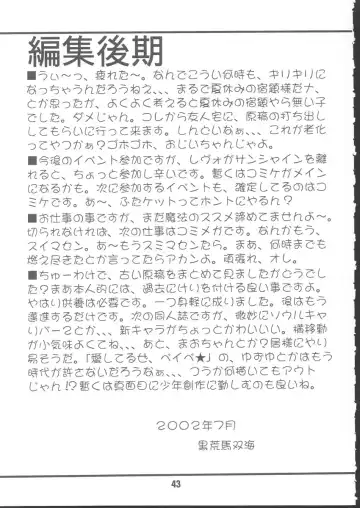 編集後期
■うぃ～っ、疲れた～。なんでこういう何時も、キリキリに
なっちゃうんだろうねえ、、、まるで夏休みの宿題様だナ、
とか思ったが、よくよく考えると夏休みの宿題やら無い子で
した。ダメじゃん。コレから友人宅に、原稿の打ち出し
してもらいに行って来ます。しんどいなぁ、、、これが老化
ってやつかぁ?ゴホゴホ、おじいちゃんじゃよ。
■今後のイベント参加ですが、レヴォがサンシャインを離
れると、ちょっと参加し辛いです。暫くはコミケがメイン
になるかも。次に参加するイベントも、確定してるのはコ
ミケです。あ～、ふたケットってホントにやるん?
■お仕事の事ですが、まだ魔法のススメ諦めてませんよ～。
切られなければ、次の仕事はコミメガです。なんかもう、
スイマセン。あ～もうスミマセンたら。まあ、何時までも
燃え尽きたとか言ってたらアカンよ。頑張れ、オレ。
■ちゅーわけで、古い原稿をまとめて見ましたがどうでし
た?まあ本人的には、過去にけりを付ける良い事ですよ。
やはり供養は必要です。一つ身軽に成りました。後はもう
邁進するだけです。次の同人誌ですが、微妙にソウルキャ
リバー2とか、、、新キャラがちょっとかわいい。横移動
が小気味よくてね、、、あと、まおちゃんとか?居様にやり
易そうだ。「愛してるぜ、ベイベ★」の、ゆずゆとかはもう
時代が許さないだろうなぁ、、、つうか何描いてもアウト
じゃん!?暫くは真面目に少年創作に勤しむのも良いね。
2002年7月
黒荒馬双海
43